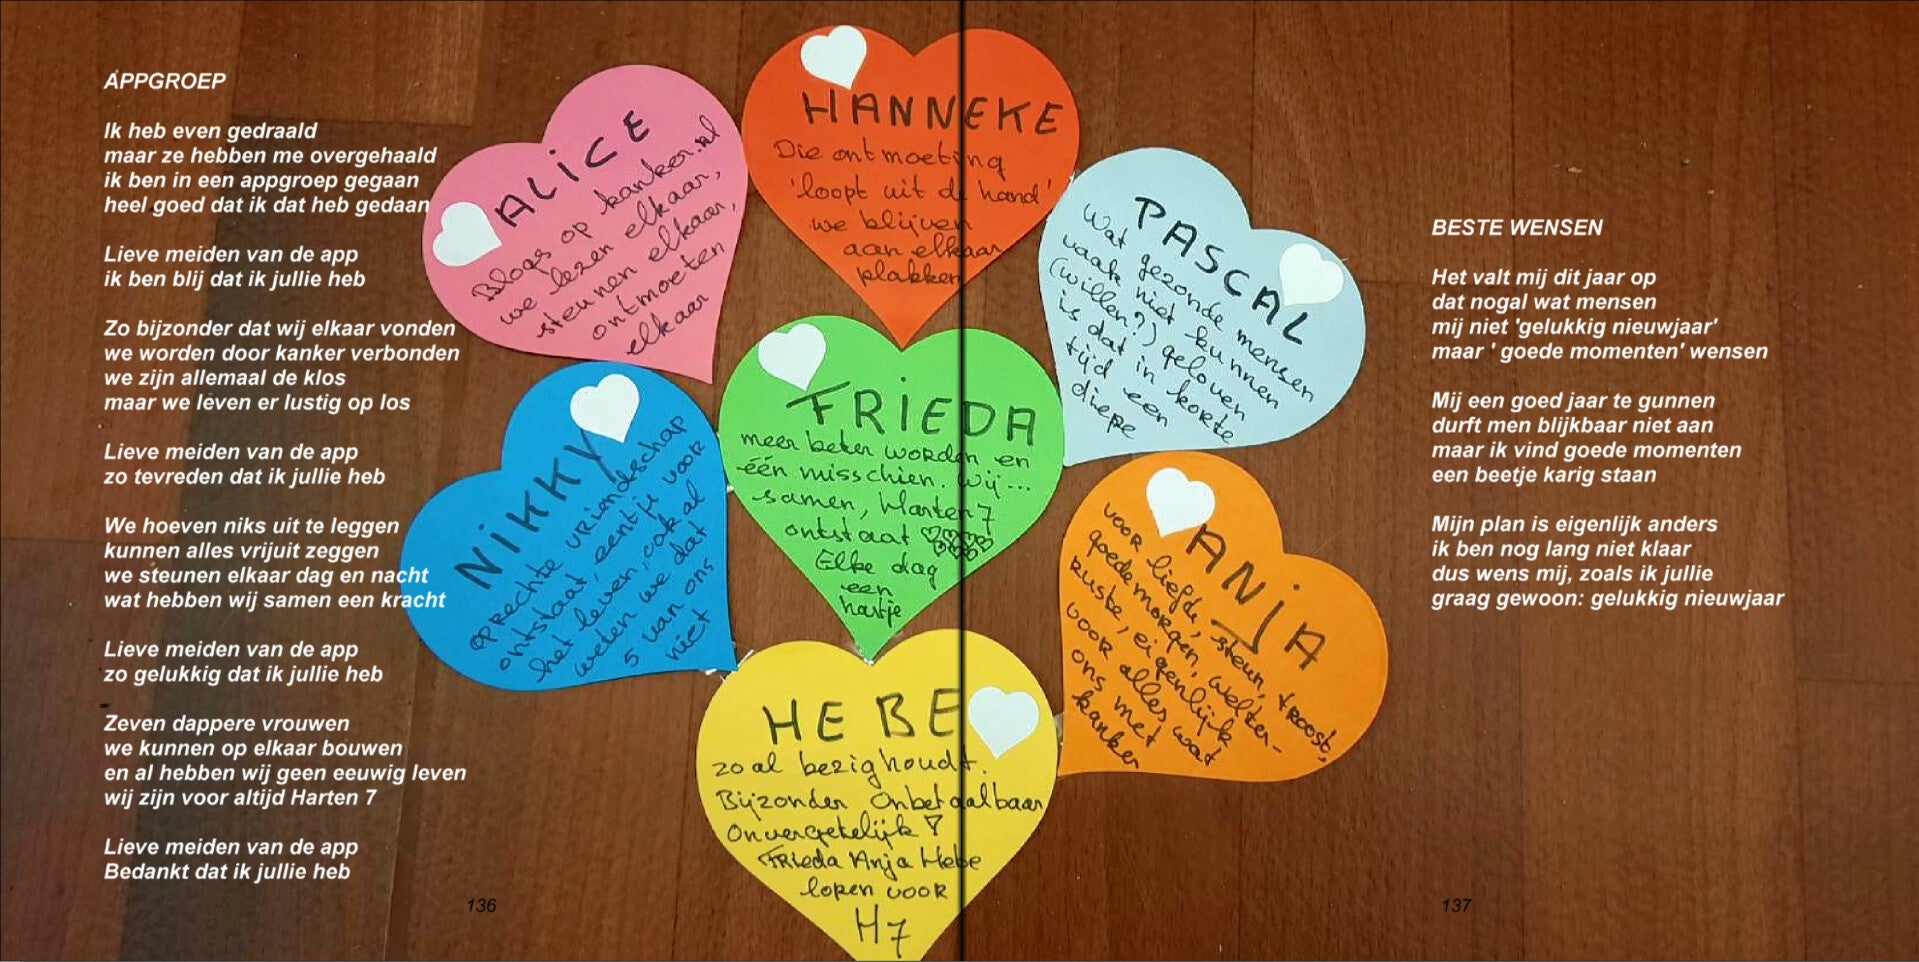 APPGROEP
Ik heb even gedraald
maar ze hebben me overgehaald
ik ben in een appgroep gegaan
heel goed dat ik dat heb gedaan
Lieve meiden van de app
ik ben blij dat ik jullie heb
Zo bijzonder dat wij elkaar vonden
we worden door kanker verbonden
we zijn allemaal de klos
maar we leven er lustig op los
Lieve meiden van de app
zo tevreden dat ik jullie heb
We hoeven niks uit te leggen
kunnen alles vrijuit zeggen
we steunen elkaar dag en nacht
wat hebben wij samen een kracht
Lieve meiden van de app
zo gelukkig dat ik jullie heb
Zeven dappere vrouwen
we kunnen op elkaar bouwen
en al hebben wij geen eeuwig leven
wij zijn voor altijd Harten 7
Lieve meiden van de app
Bedankt dat ik jullie heb
136
ALICE
Blogs op kanker.nl
we lezen elkaar,
steunen elkaar,
ontmoeten
elkaar
HANNEKE
Die ontmoeting
'loopt uit de hand'
we blijven
aan elkaar
plakken
PASCAL
Wat gezonde mensen
vaak niet kunnen
(willen?) geloven
is dat in korte
tijd een
diepe
NIKKY
oprechte vriendschap
ontstaat, eentje voor
het leven, ook al
weten we dat
5 van ons
niet
FRIEDA
meer beter worden en
één misschien. Wij...
samen, Harten 7
ontstaat ♡♡♡♡♡♡♡
Elke dag
een
hartje
ANJA
voor liefde, steun, troost,
goedemorgen, welter-
ruste, eigenlijk
voor alles wat
ons met
kanker
HEBE
zoal bezighoudt.
Bijzonder Onbetaalbaar
Onvergetelijk ♡
Frieda Anja Hebe
lopen voor
H7
BESTE WENSEN
Het valt mij dit jaar op
dat nogal wat mensen
mij niet 'gelukkig nieuwjaar'
maar ' goede momenten' wensen
Mij een goed jaar te gunnen
durft men blijkbaar niet aan
maar ik vind goede momenten
een beetje karig staan
Mijn plan is eigenlijk anders
ik ben nog lang niet klaar
dus wens mij, zoals ik jullie
graag gewoon: gelukkig nieuwjaar
137